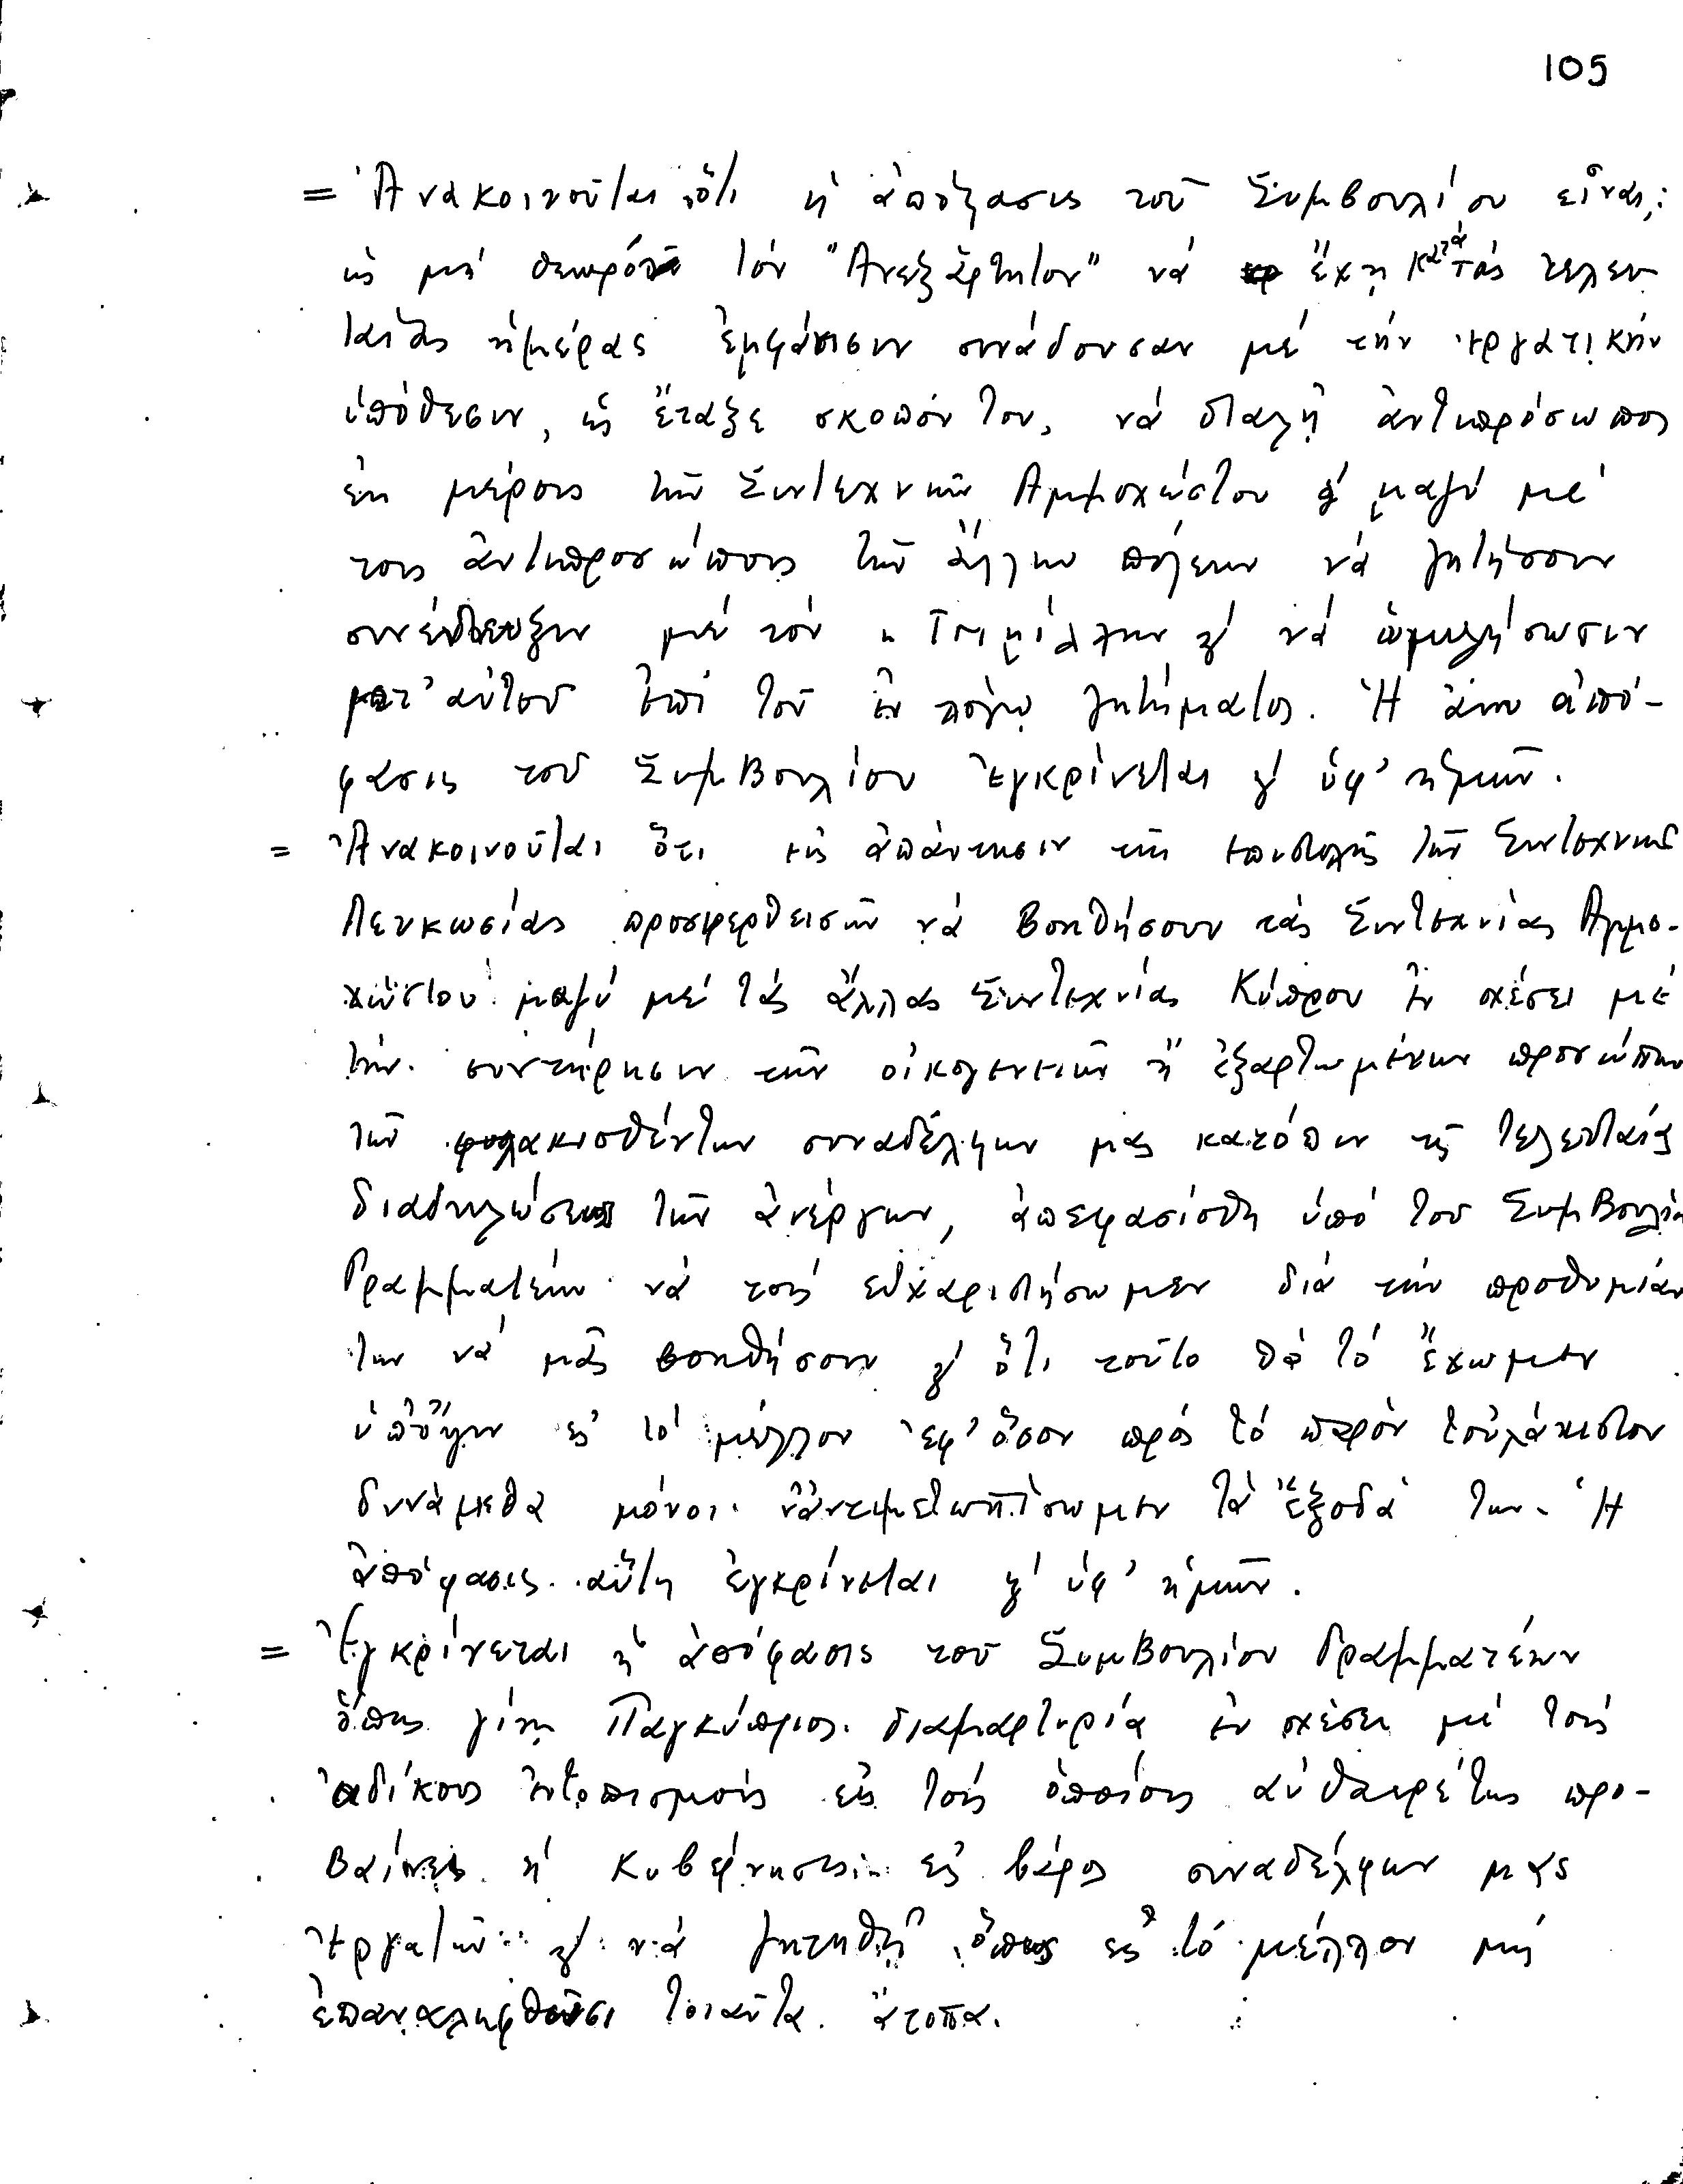 105
= Ἀνακοινοῦται ὅτι ἡ ἀπόφασις τοῦ Συμβουλίου εἶναι:
ὡς μή θεωρόν τόν "Ἀνεξάρτητον" νά ἔχῃ κατά τάς τελευ
ταίας ἡμέρας ἐμφάνισιν συνάδουσαν μέ τήν ἐργατικήν
ὑπόθεσιν, ὡς ἔταξε σκοπόν του, νά σταλῇ ἀντιπρόσωπος
ἐκ μέρους τῶν Συντεχνιῶν Ἀμμοχώστου & μαζύ μέ
τους ἀντιπροσώπους τῶν ἄλλων πόλεων νά ζητήσουν
συνέντευξιν μέ τόν κ & νά ὁμιλήσωσιν
μετ' αὐτοῦ ἐπί τοῦ ἐν λόγῳ ζητήματος. Ἡ ἄνω ἀπό-
φασις τοῦ Συμβουλίου ἐγκρίνεται & ὑφ' ἡμῶν.
= Ἀνακοινοῦται ὅτι εἰς ἀπάντησιν τῆς ἐπιστολῆς τῶν Συντεχνιῶν
Λευκωσίας προσφερθεισῶν νά βοηθήσουν τάς Συντεχνίας Ἀμμο-
χώστου μαζύ μέ τάς ἄλλας Συντεχνίας Κύπρου ἐν σχέσει μέ
τήν συντήρησιν τῶν οἰκογενειῶν ἤ ἐξαρτωμένων προσώπων
τῶν φυλακισθέντων συναδέλφων μας κατόπιν τῆς τελευταίας
διαδηλώσεως τῶν ἀνέργων, ἀπεφασίσθη ὑπό του Συμβουλίου
Γραμματέων νά τούς εὐχαριστήσωμεν διά τήν προθυμίαν
των νά μᾶς βοηθήσουν & ὅτι τοῦτο θά τό ἔχωμεν
ὑπ' ὄψιν εἰς τό μέλλον ἐφ' ὅσον πρός τό παρόν τοὐλάχιστον
δυνάμεθα μόνοι νἀντιμετωπίσωμεν τά ἔξοδά των. Ἡ
ἀπόφασις αὕτη ἐγκρίνεται & ὑφ' ἡμῶν.
= Ἐγκρίνεται ἡ ἀπόφασις τοῦ Συμβουλίου Γραμματέων
ὅπως γίνῃ Παγκύπριος διαμαρτυρία ἐν σχέσει μέ τούς
ἀδίκους ἐκτοπισμούς εἰς τούς ὁποίους αὐθαιρέτως προ-
βαίνει ἡ κυβέρνησις εἰς βάρος συναδέλφων μας
ἐργατῶν & νά ζητηθῇ ὅπως εἰς τό μέλλον μή
ἐπαναληφθοῦσι τοιαῦτα ἄτοπα.